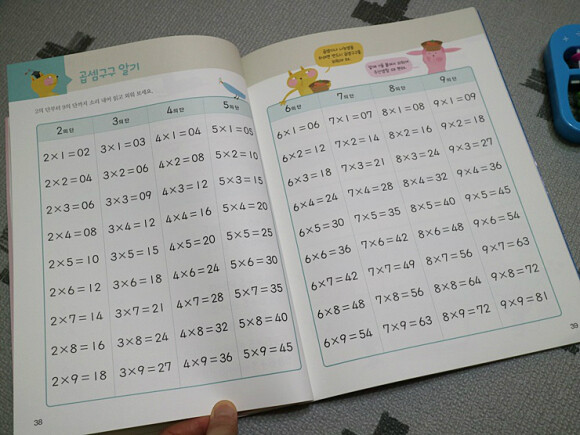 곱셈구구 알기
2의 단부터 9의 단까지 소리 내어 읽고 외워 보세요.
2의 단 3의 단 4의 단 5의 단
2×1=02 3×1=03 4×1=04 5×1=05
2×2=04 3×2=06 4×2=08 5×2=10
2×3=06 3×3=09 4×3=12 5×3=15
2×4=08 3×4=12 4×4=16 5×4=20
2×5=10 3×5=15 4×5=20 5×5=25
2×6=12 3×6=18 4×6=24 5×6=30
2×7=14 3×7=21 4×7=28 5×7=35
2×8=16 3×8=24 4×8=32 5×8=40
2×9=18 3×9=27 4×9=36 5×9=45
38
6의 단 7의 단 8의 단 9의 단
6×1=06 7×1=07 8×1=08 9×1=09
6×2=12 7×2=14 8×2=16 9×2=18
6×3=18 7×3=21 8×3=24 9×3=27
6×4=24 7×4=28 8×4=32 9×4=36
6×5=30 7×5=35 8×5=40 9×5=45
6×6=36 7×6=42 8×6=48 9×6=54
6×7=42 7×7=49 8×7=56 9×7=63
6×8=48 7×8=56 8×8=64 9×8=72
6×9=54 7×9=63 8×9=72 9×9=81
39